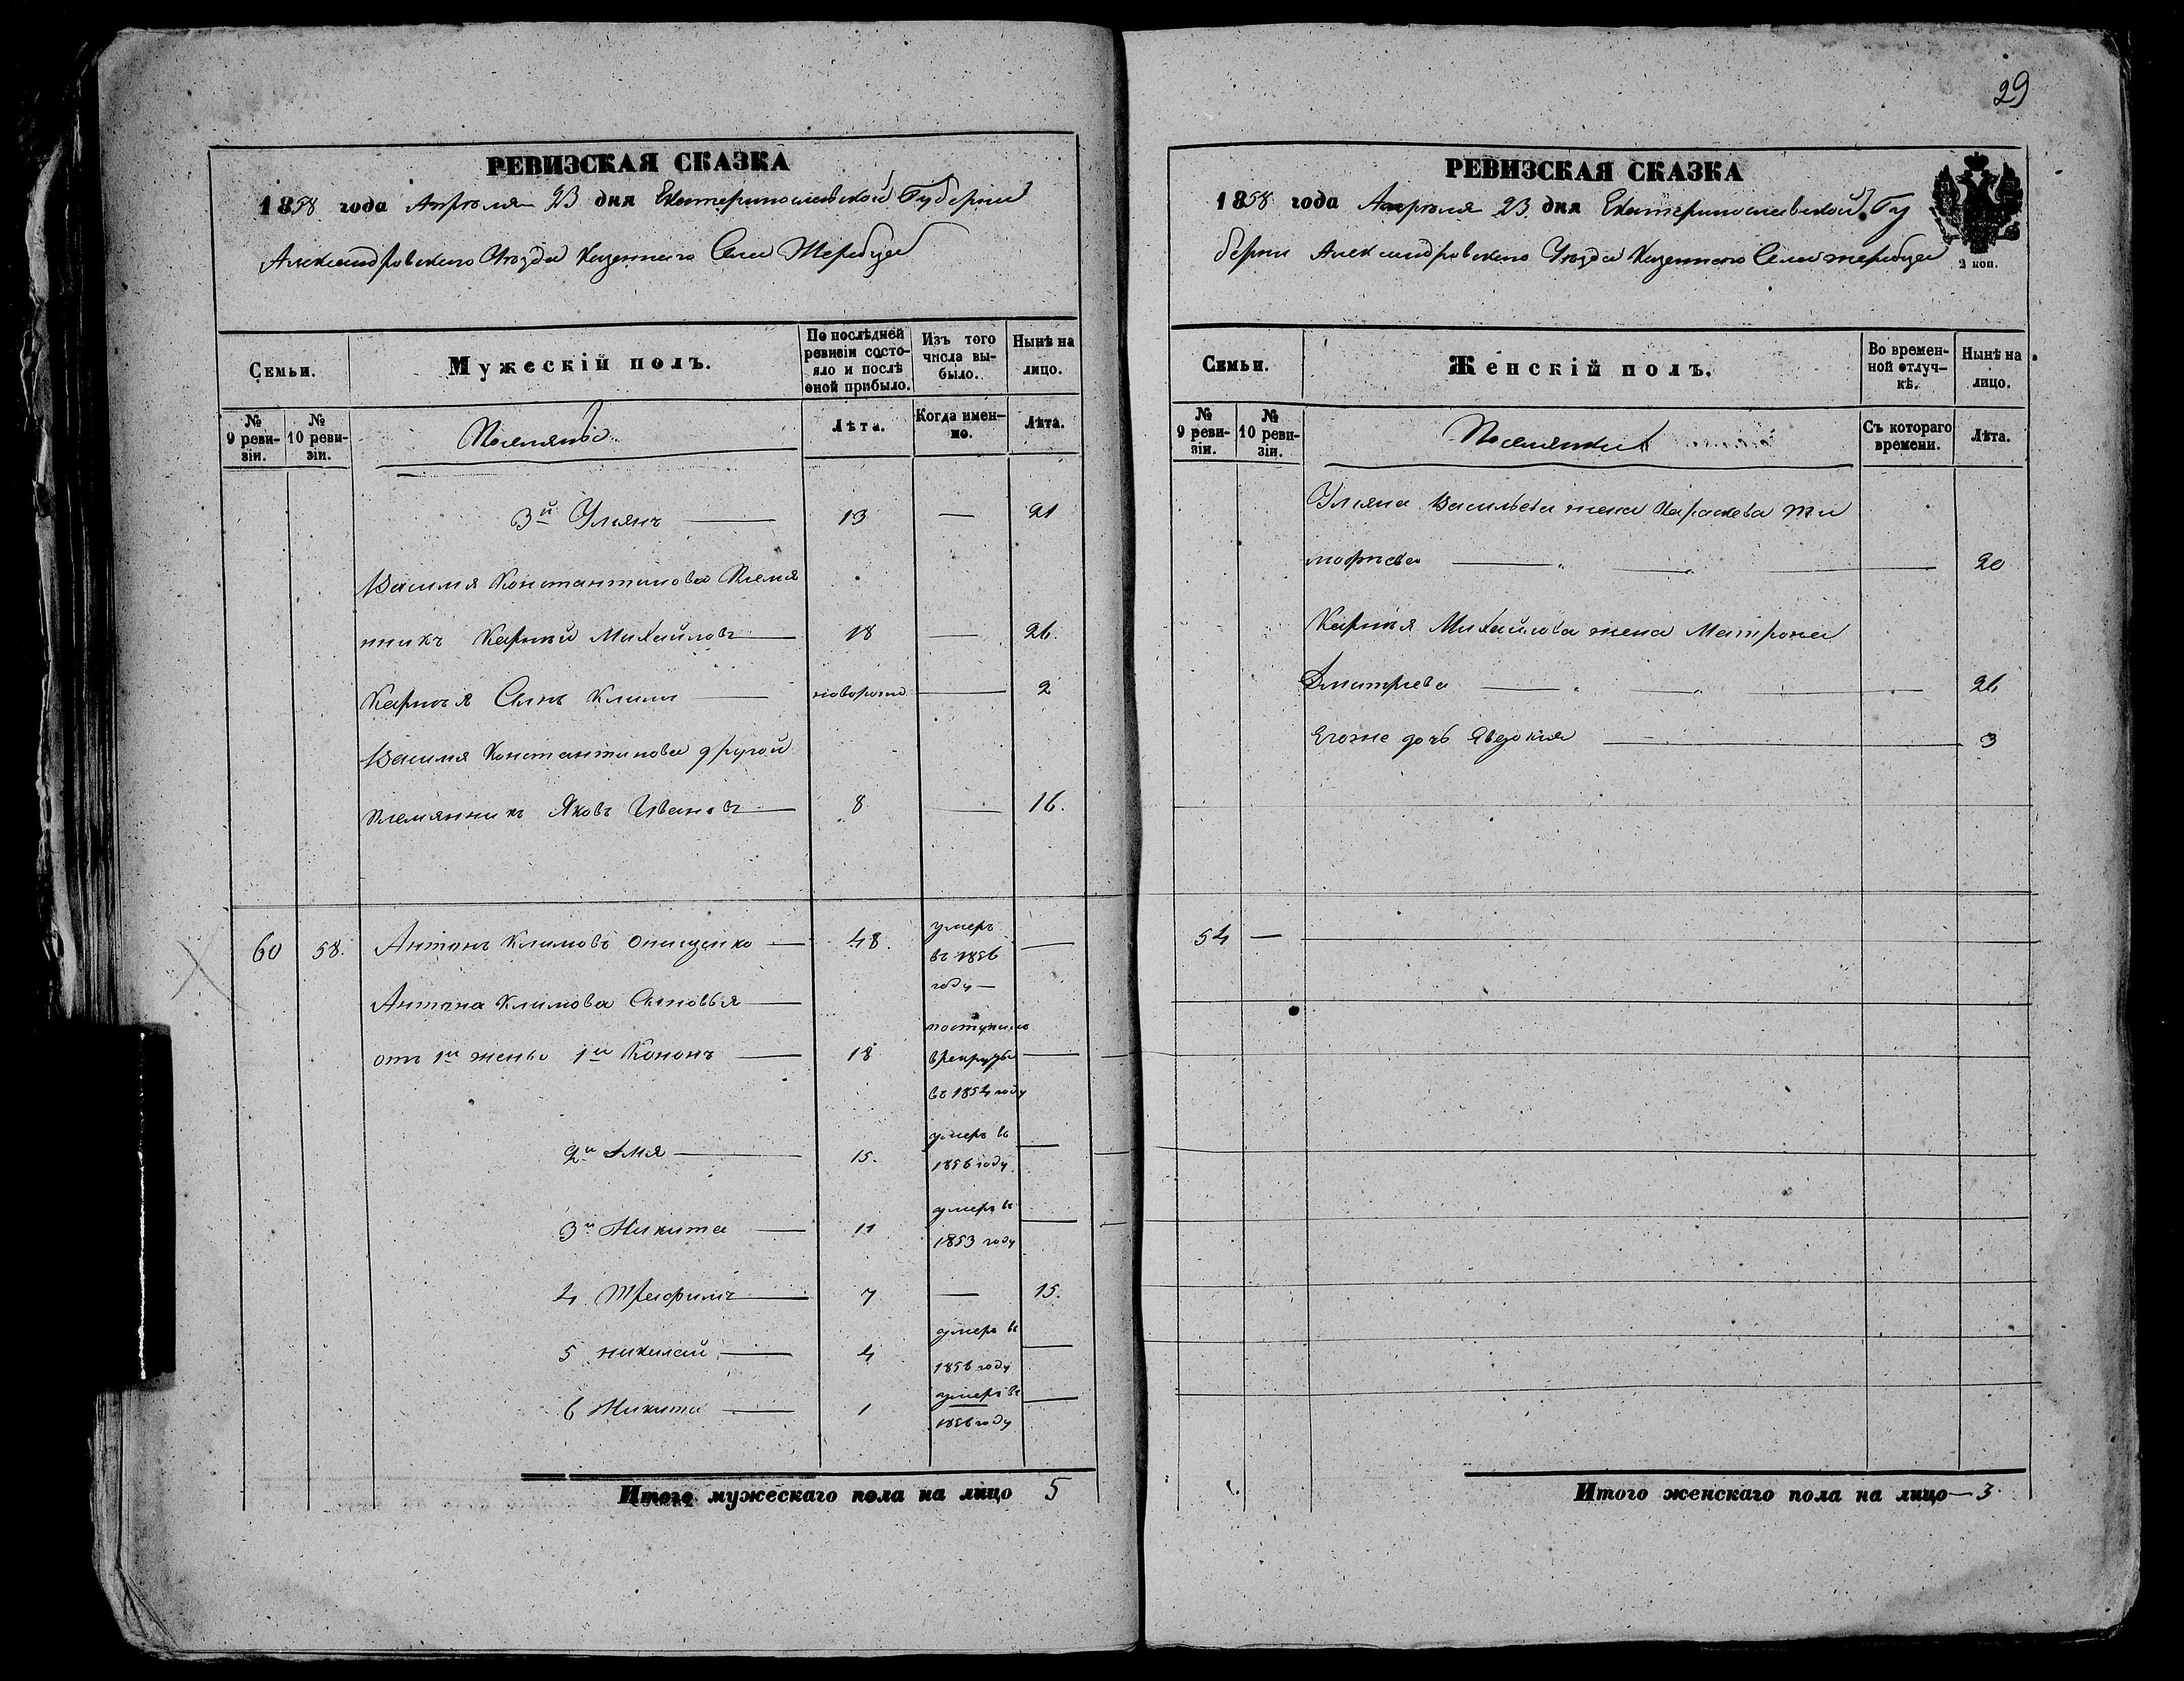 29
РЕВИЗСКАЯ СКАЗКА
1858 года Апреля 23 дня Екатеринославской Губернии
Александровского Уезда Казенного Села Жеребца
Семьи.
Мужескій полъ.
По послѣдней ревизіи состояло и послѣ оной прибыло.
Изъ того числа выбыло.
Нынѣ на лицо.
№ 9 ревизіи.
№ 10 ревизіи.
Поселяне
Лѣта.
Когда именно.
Лѣта.
3й Ульянъ — 13 — 21
Василия Константинова Племя
нникъ Карпий Михайловъ — 18 — 26.
Карпия Сынъ Климъ — новорожд — 2
Василия Константинова другой
племянникъ Яковъ Ивановъ — 8 — 16.
60 58. Антонъ Климовъ Онищенко — 48. умеръ въ 1856 году —
Антона Климова Сыновья —
отъ 1й жены 1й Кононъ — 18 поступилъ в рекруты въ 1854 году —
2й Илья — 15. умеръ въ 1856 году —
3й Никита — 11 умеръ въ 1853 году —
4 Трофимъ — 7 — 15.
5 Николай — 4 умеръ въ 1856 году —
6 Никита — 1 умеръ въ 1856 году —
Итого мужескаго пола на лицо 5
РЕВИЗСКАЯ СКАЗКА
1858 года Апреля 23 дня Екатеринославской Гу
бернии Александровского Уезда Казенного Села Жеребца
2 коп.
Семьи.
Женскій полъ.
Во временной отлучкѣ.
Нынѣ на лицо.
№ 9 ревизіи.
№ 10 ревизіи.
Поселянки
Съ котораго времени.
Лѣта.
Ульяна Васильева жена Параскева Ти
мофиева — 20
Карпия Михайлова жена Матрона
Дмитриева — 26
Егоже дочь Явдокия — 3
54 —
Итого женскаго пола на лицо — 3.